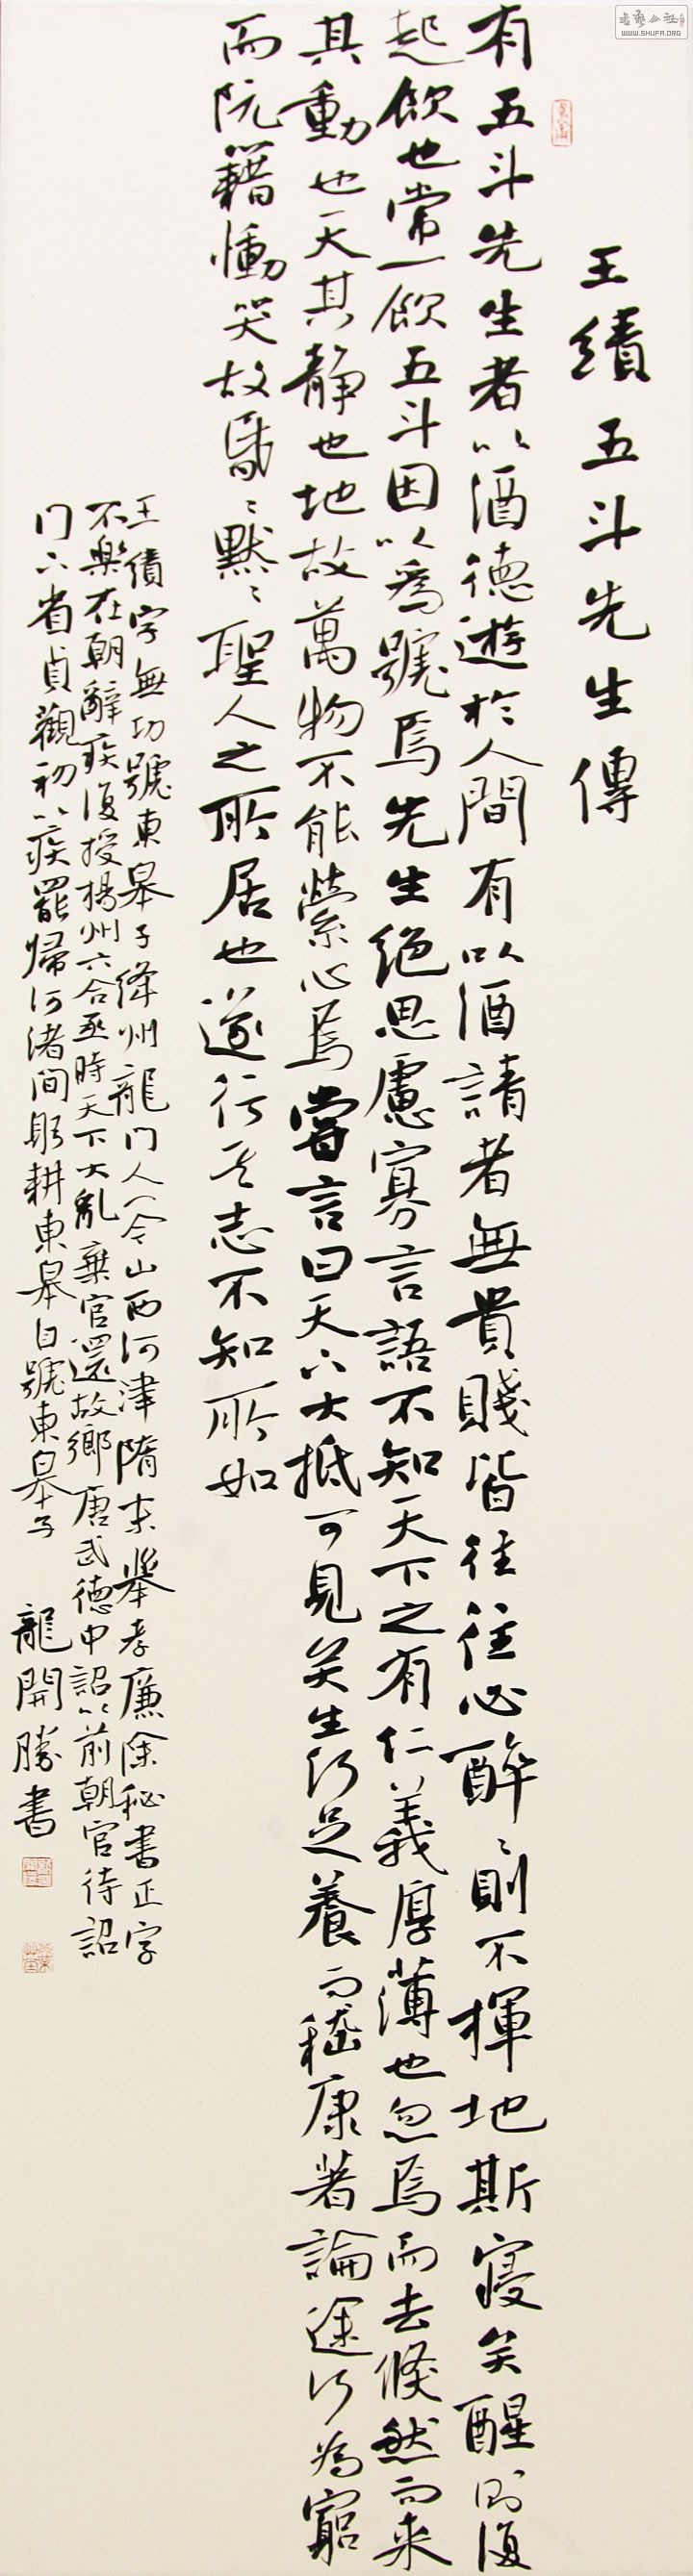 王績五斗先生傳
有五斗先生者以酒德遊於人間有以酒請者無貴賤皆往往必醉〻則不揮地斯寢矣醒則復
起飲也常一飲五斗因以為號焉先生絕思慮寡言語不知天下之有仁義厚薄也忽焉而去倏然而來
其動也天其靜也地故萬物不能縈心焉嘗言曰天下大抵可見矣生何足養而嵇康著論途何為窮
而阮籍慟哭故昏〻默〻聖人之所居也遂行其志不知所如
王績字無功號東皋子絳州龍門人今山西河津隋末舉孝廉除秘書正字
不樂在朝辭疾復授揚州六合丞時天下大亂棄官還故鄉唐武德中詔以前朝官待詔
門下省貞觀初以疾罷歸河渚間躬耕東皋自號東皋子
龍開勝書
WWW.SHUFA.ORG